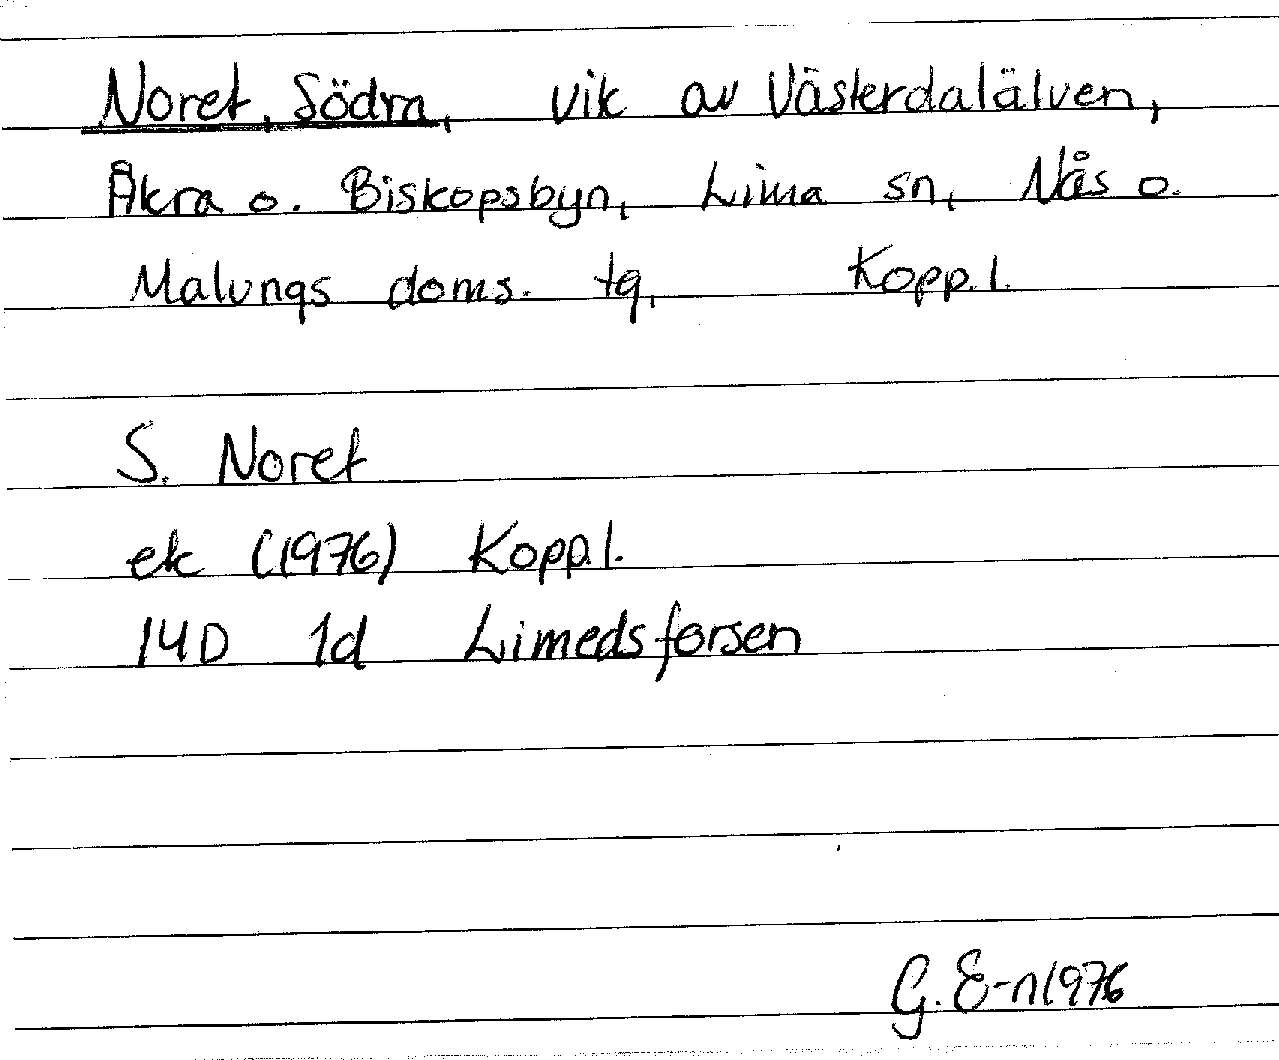 Noret, Södra, vik av Västerdalälven,
Åkra o. Biskopsbyn, Lima sn, Nås o.
Malungs doms. tg, Kopp.l.
S. Noret
ek (1976) Kopp.l.
14D 1d Limedsforsen
G. E-n 1976